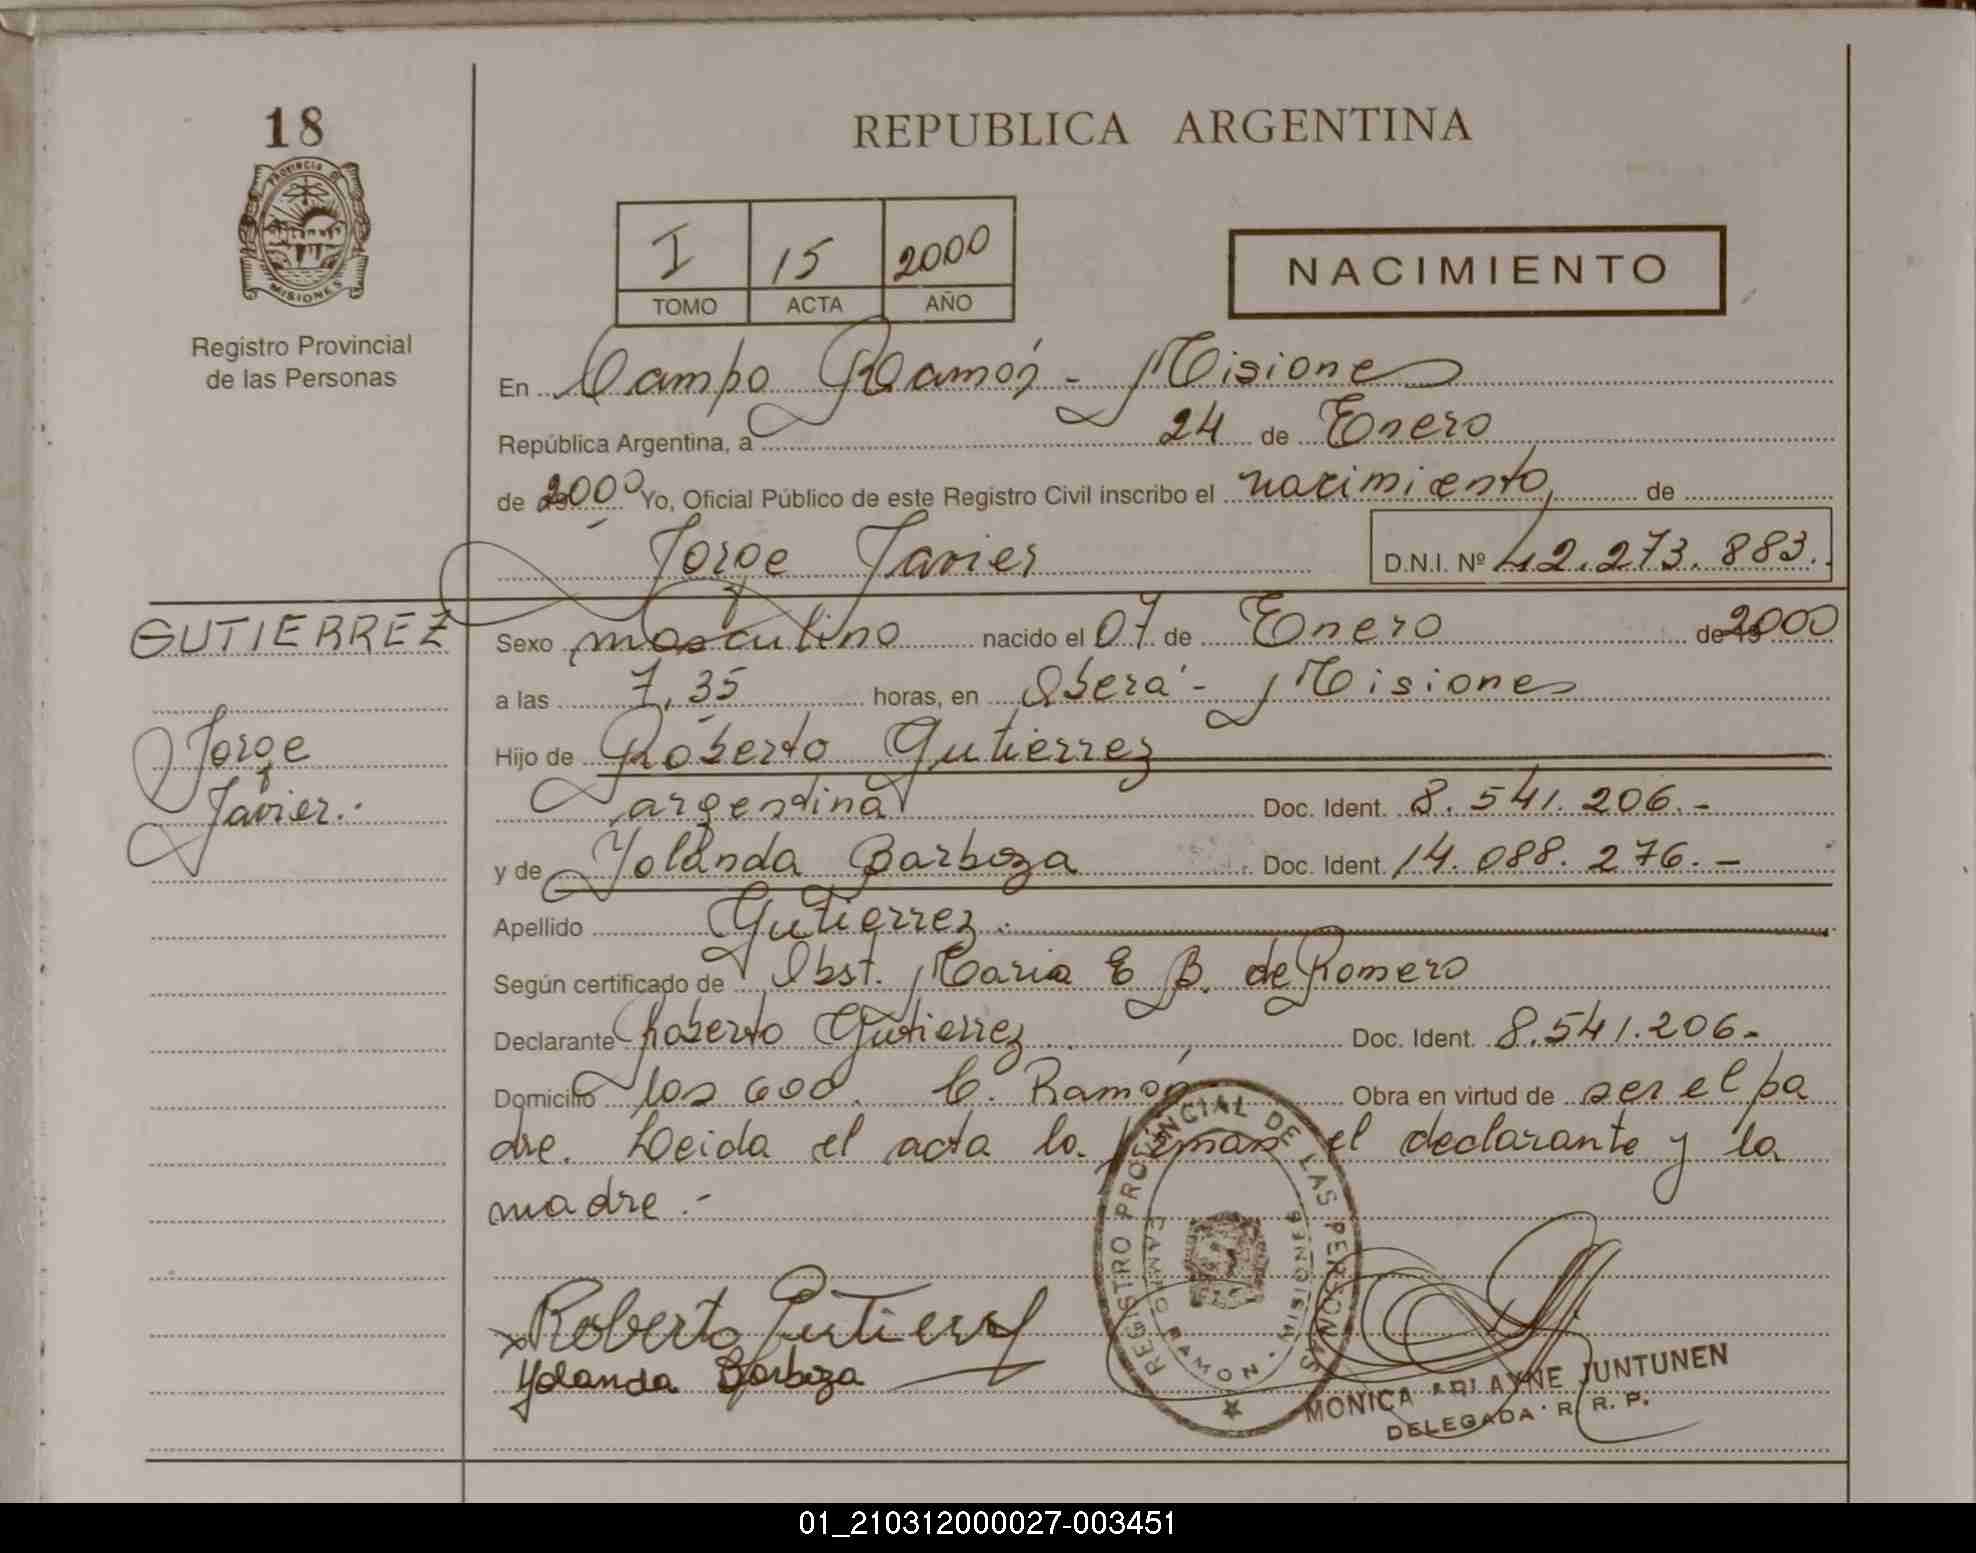 18
PROVINCIA DE
MISIONES
Registro Provincial
de las Personas
REPUBLICA ARGENTINA
I 15 2000
TOMO ACTA AÑO
NACIMIENTO
En Campo Ramón - Misiones
República Argentina, a 24 de Enero
de 2000 Yo, Oficial Público de este Registro Civil inscribo el nacimiento, de
Jorge Javier D.N.I. Nº 42.273.883.
GUTIERREZ
Jorge
Javier.
Sexo masculino nacido el 07 de Enero de 2000
a las 7,35 horas, en Oberá - Misiones
Hijo de Roberto Gutierrez
argentina Doc. Ident. 8.541.206.-
y de Yolanda Barboza Doc. Ident. 14.088.276.-
Apellido Gutierrez.
Según certificado de Obst. Maria E B. de Romero
Declarante Roberto Gutierrez Doc. Ident. 8.541.206-
Domicilio los 600. C. Ramón Obra en virtud de ser el pa
dre. Leida el acta la firman el declarante y la
madre.-
REGISTRO PROVINCIAL DE LAS PERSONAS
CAMPO RAMON - MISIONES
Roberto Gutierrez
Yolanda Barboza
MONICA JUNTUNEN
DELEGADA R. R. P.
01_210312000027-003451